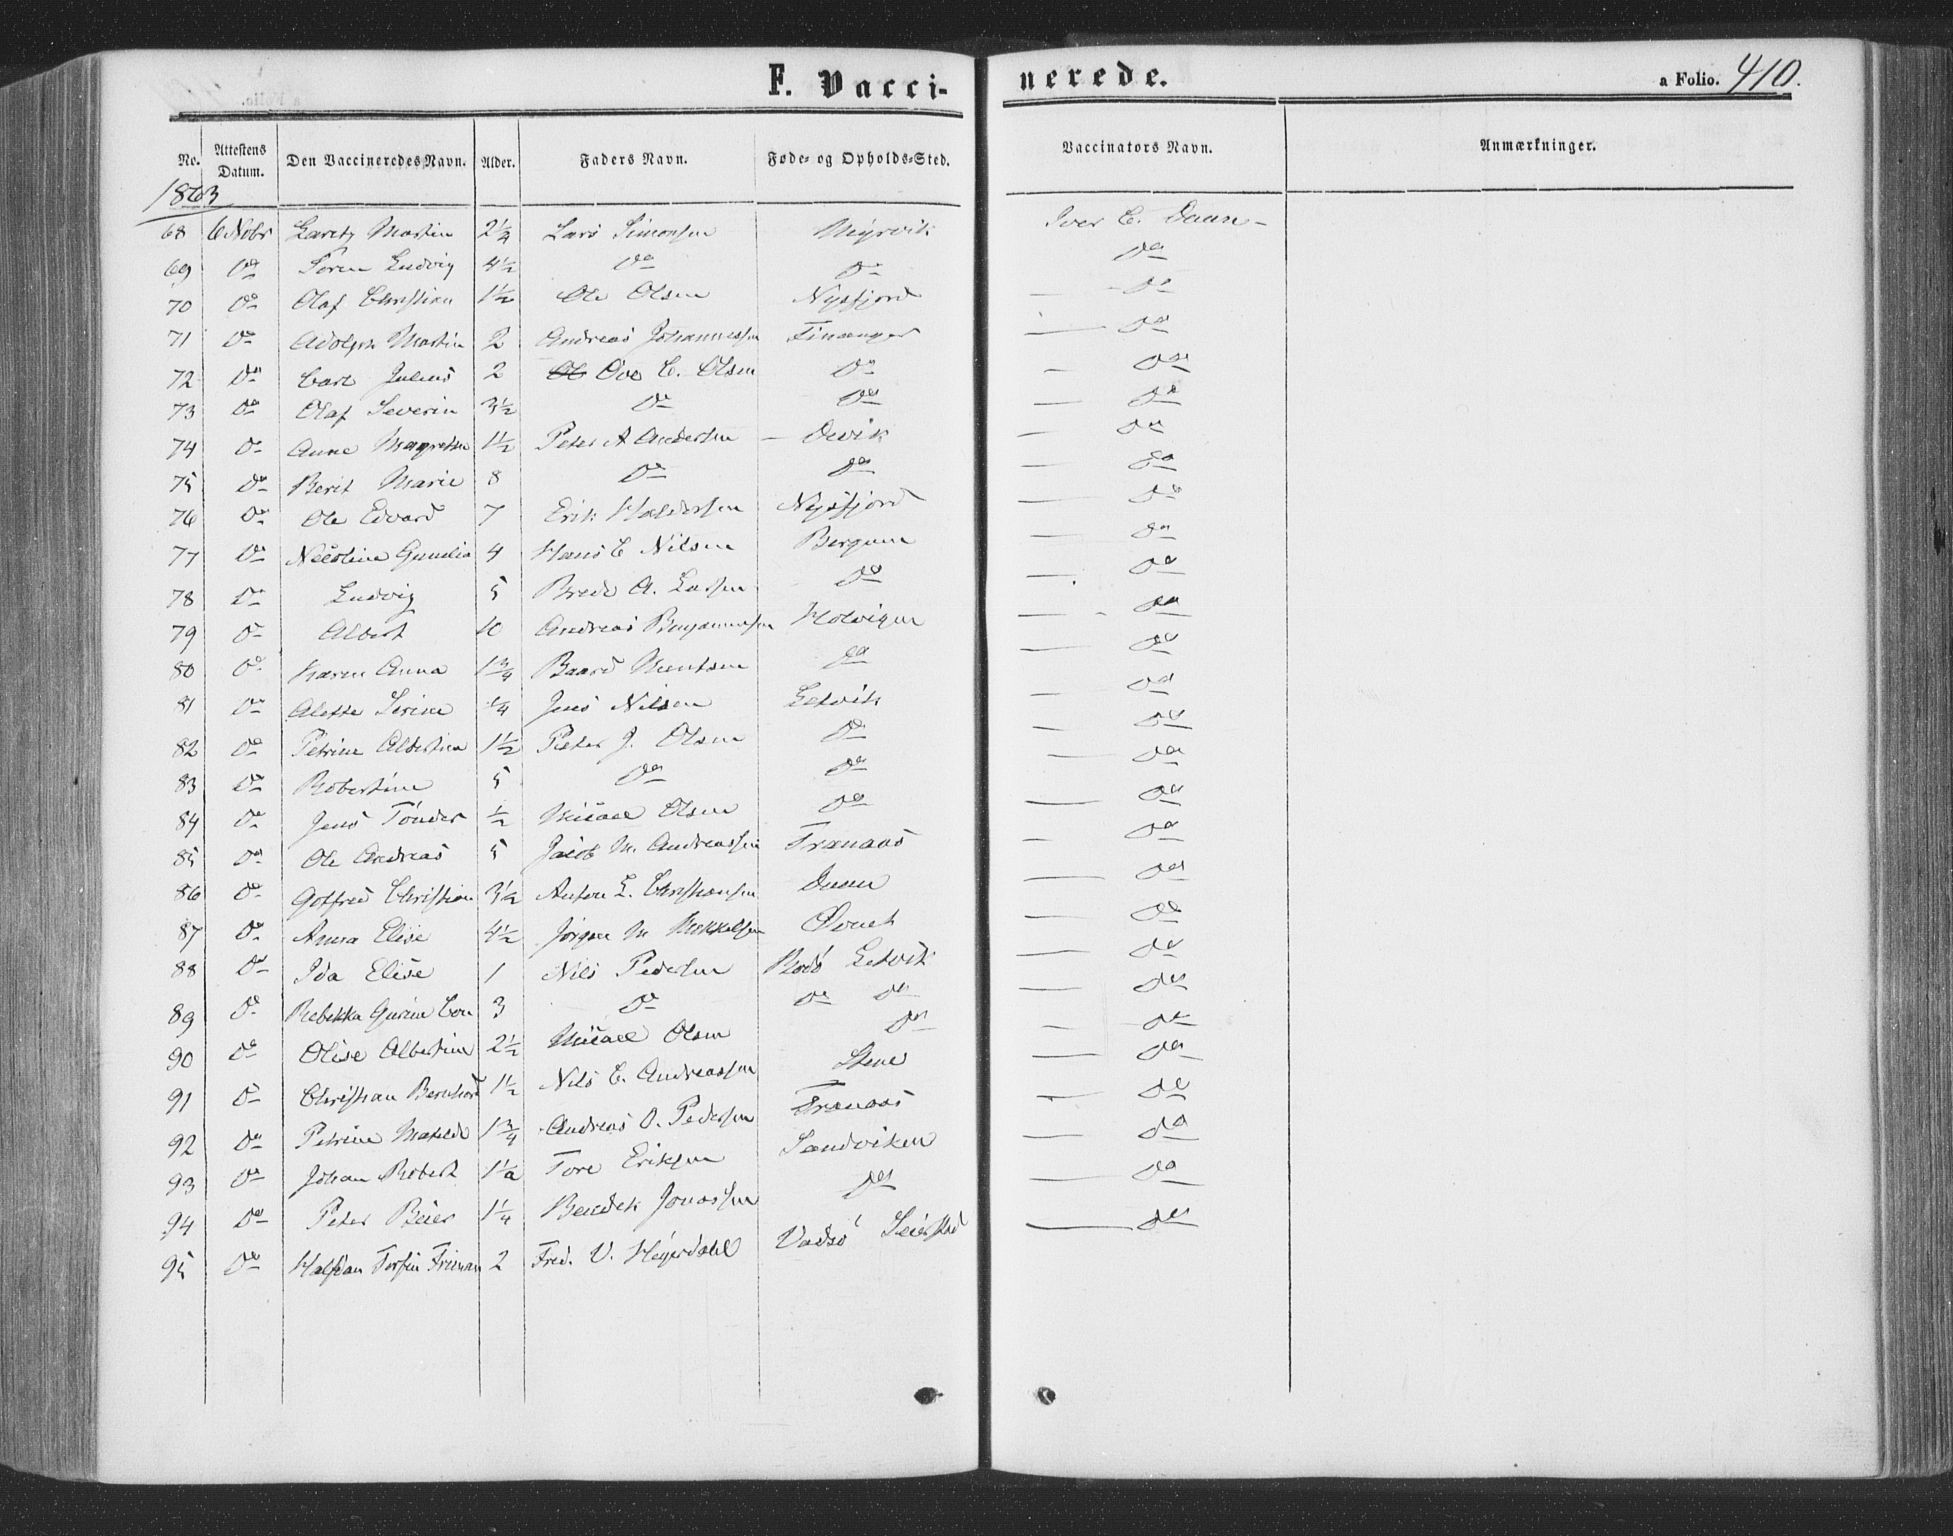 F. Vacci- nerede. a Folio. 410.
No. Attestens Datum. Den Vaccineredes Navn. Alder. Faders Navn. Føde- og Opholds-Sted. Vaccinators Navn. Anmærkninger.
1863
68 6 Nobr Martin 2¼ Lars Simonsen Iver C.
69 Do Søren Ludvig 4½ Do Do Do
70 Do Olaf Christian 1½ Ole Olsen Nysfjord — Do
71 Do Adolph Martin 2 Andreas Johannessen Finanger — Do
72 Do Carl Julius 2 Ove C. Olsen Do — Do
73 Do Olaf Severin 3½ Do Do — Do
74 Do Anne Magrethe 1½ Peter A Andersen — — Do
75 Do Berit Marie 8 Do Do — Do
76 Do Ole Edvard 7 Erik Haldorsen Nysfjord — Do
77 Do Nicoline 4 Hans C Nilsen — Do
78 Do Ludvig 5 Brede A. Larsen Do — Do
79 Do Albert 10 Andreas Benjaminsen Holvigen — Do
80 Do Karen Anna 1¾ Baard Do — Do
81 Do Alette Serine ¼ Jens Nilsen Letvik — Do
82 Do Petrine Albertine 1½ Peter J. Olsen Do — Do
83 Do Robertine 5 Do Do — Do
84 Do Jens Tönder ½ Micael Olsen Do — Do
85 Do Ole Andreas 5 Jacob M. Andreassen Tranaas — Do
86 Do Gotfred Christian 3½ Anton L. Christiansen — Do
87 Do Anna Elise 4½ Jörgen M Mikkelsen — Do
88 Do Ida Elise 1 Nils Pedersen Rodö Letvik — Do
89 Do Rebekka 3 Do Do Do — Do
90 Do Olise Albertine 2½ Micael Olsen Do — Do
91 Do Christian Bernhard 1½ Nils C. Andreassen Stene — Do
92 Do Petrine Matilde 1¾ Andreas O. Pedersen Tranaas — Do
93 Do Johan Robert Tore Eriksen Sandviken — Do
94 Do Peter Beier 1¼ Bendik Jonassen Do — Do
95 Do Halfdan Torfin 2 Fred. V. Heyerdahl Vadsö — Do